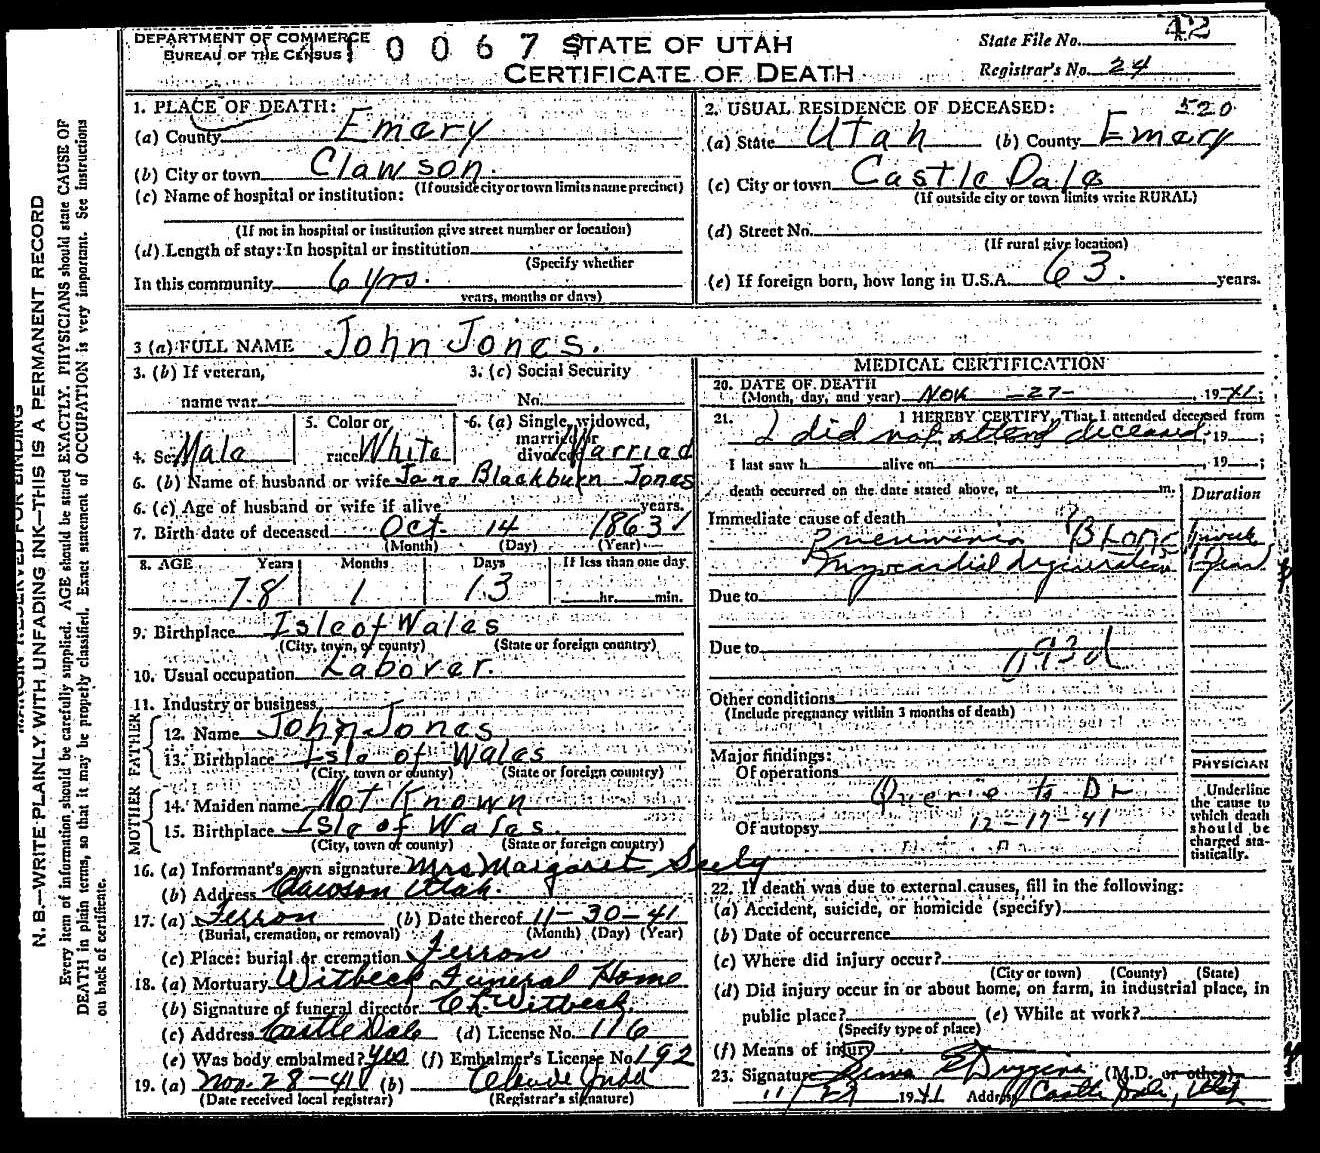 42
DEPARTMENT OF COMMERCE
BUREAU OF THE CENSUS
0 0 6 7
STATE OF UTAH
CERTIFICATE OF DEATH
State File No.
Registrar's No. 24
1. PLACE OF DEATH:
(a) County Emery
(b) City or town Clawson.
(If outside city or town limits name precinct)
(c) Name of hospital or institution:
(If not in hospital or institution give street number or location)
(d) Length of stay: In hospital or institution
(Specify whether
In this community 6 yrs.
years, months or days)
2. USUAL RESIDENCE OF DECEASED: 520
(a) State Utah (b) County Emery
(c) City or town Castle Dale
(If outside city or town limits write RURAL)
(d) Street No.
(If rural give location)
(e) If foreign born, how long in U.S.A. 63. years.
3 (a) FULL NAME John Jones.
3. (b) If veteran,
name war
3. (c) Social Security
No.
4. Sex Male
5. Color or
race White
6. (a) Single, widowed,
married or
divorced Married
6. (b) Name of husband or wife Jane Blackburn Jones
6. (c) Age of husband or wife if alive years.
7. Birth date of deceased Oct. 14 1863
(Month) (Day) (Year)
8. AGE Years Months Days If less than one day
78 1 13 hr. min.
9. Birthplace Isle of Wales
(City, town, or county) (State or foreign country)
10. Usual occupation Laborer.
11. Industry or business
FATHER
12. Name John Jones
13. Birthplace Isle of Wales
(City, town or county) (State or foreign country)
MOTHER
14. Maiden name Not Known
15. Birthplace Isle of Wales.
(City, town or county) (State or foreign country)
16. (a) Informant's own signature Mrs Margaret Seely
(b) Address Clawson Utah.
17. (a) Ferron (b) Date thereof 11-30-41
(Burial, cremation, or removal) (Month) (Day) (Year)
(c) Place: burial or cremation Ferron
18. (a) Mortuary Witbeck Funeral Home
(b) Signature of funeral director C L Witbeck.
(c) Address Castle Dale (d) License No. 116
(e) Was body embalmed? yes (f) Embalmer's License No. 192
19. (a) Nov. 28-41 (b) Claude Judd
(Date received local registrar) (Registrar's signature)
MEDICAL CERTIFICATION
20. DATE OF DEATH
(Month, day, and year) Nov -27- , 1941;
21. I HEREBY CERTIFY, That I attended deceased from
I did not attend deceased, 19 ;
I last saw h alive on , 19 ;
death occurred on the date stated above, at m.
Duration
Immediate cause of death
Pneumonia ? Bronc 1 week
Myocardial degeneration 1 year
Due to
Due to
093d
Other conditions
(Include pregnancy within 3 months of death)
Major findings:
Of operations
Querie to Dr
Of autopsy 12-17-41
PHYSICIAN
Underline
the cause to
which death
should be
charged sta-
tistically.
22. If death was due to external causes, fill in the following:
(a) Accident, suicide, or homicide (specify)
(b) Date of occurrence
(c) Where did injury occur?
(City or town) (County) (State)
(d) Did injury occur in or about home, on farm, in industrial place, in
public place? (e) While at work?
(Specify type of place)
(f) Means of injury
23. Signature (M.D. or other)
11/29 1941 Address Castle Dale, Utah
MARGIN RESERVED FOR BINDING
N. B.—WRITE PLAINLY, WITH UNFADING INK—THIS IS A PERMANENT RECORD
Every item of information should be carefully supplied. AGE should be stated EXACTLY. PHYSICIANS should state CAUSE OF
DEATH in plain terms, so that it may be properly classified. Exact statement of OCCUPATION is very important. See instructions
on back of certificate.